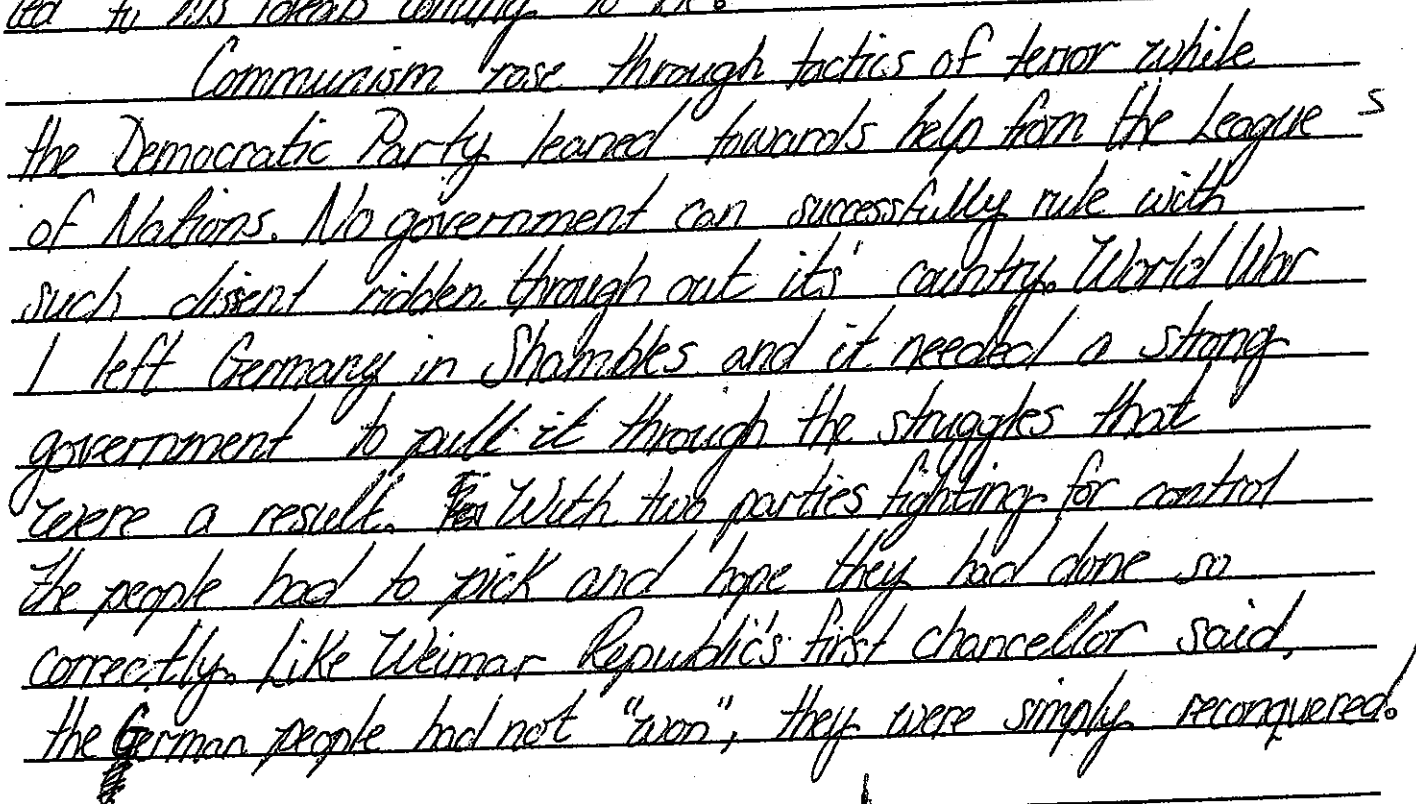 led to his ideals coming to life.
Communism rose through tactics of terror while
the Democratic Party leaned towards help from the League s
of Nations. No government can successfully rule with
such dissent ridden through out its' country. World War
I left Germany in Shambles and it needed a strong
government to pull it through the struggles that
were a result. With two parties fighting for control
the people had to pick and hope they had done so
correctly. Like Weimar Republic's first chancellor said,
the German people had not "won", they were simply reconquered.